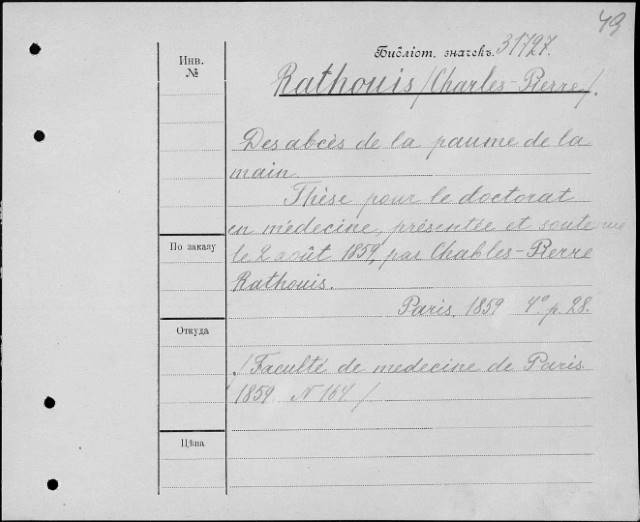 43
Инв.
№
Библіот. значекъ. 31727.
Rathouis /Charles-Pierre/.
Des abcès de la paume de la
main.
Thèse pour le doctorat
en médecine, présentée et soutenue
По заказу
le 2 août 1859, par Chables-Pierre
Rathouis.
Paris, 1859 4° p. 28.
Откуда
/Faculté de medecine de Paris
1859. N 164/
Цѣна